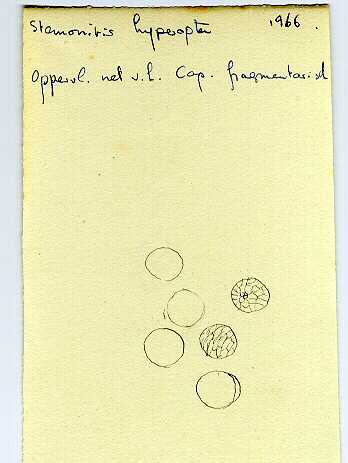 Stemonitis hyperopta 1966.
Oppervl. net v.h. Cap. fragmentarisch